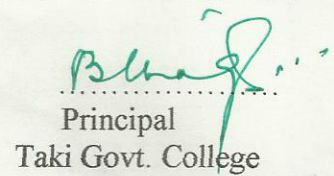 Principal
Taki Govt. College